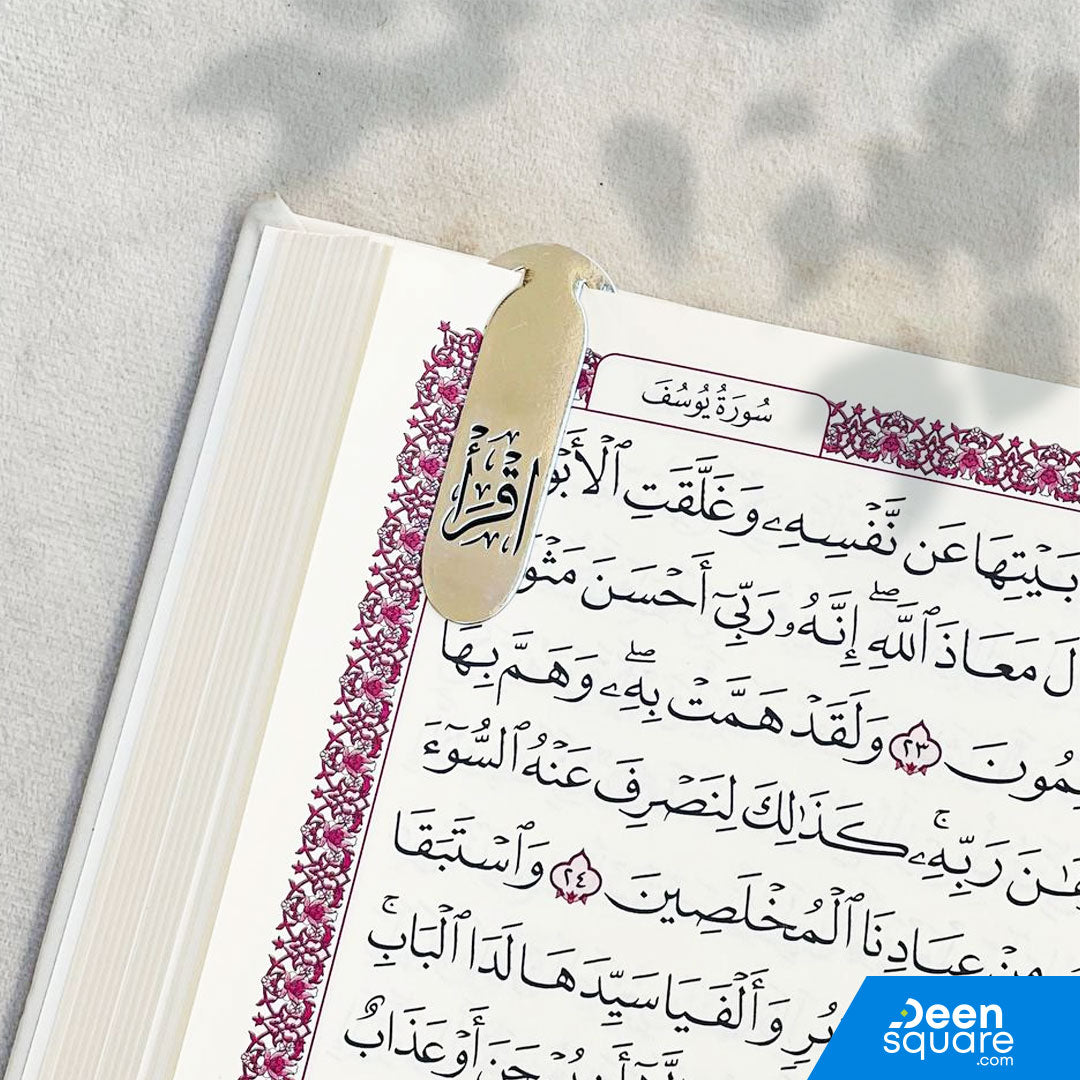 سُورَةُ يُوسُفَ
ٱقۡرَأۡ
بَيۡتِهَا عَن نَّفۡسِهِۦ وَغَلَّقَتِ ٱلۡأَبۡوَ
لَ مَعَاذَ ٱللَّهِۖ إِنَّهُۥ رَبِّيٓ أَحۡسَنَ مَثۡوَ
لِمُونَ ٢٣ وَلَقَدۡ هَمَّتۡ بِهِۦۖ وَهَمَّ بِهَا
هَٰنَ رَبِّهِۦۚ كَذَٰلِكَ لِنَصۡرِفَ عَنۡهُ ٱلسُّوٓءَ
مِنۡ عِبَادِنَا ٱلۡمُخۡلَصِينَ ٢٤ وَٱسۡتَبَقَا
بُرٖ وَأَلۡفَيَا سَيِّدَهَا لَدَا ٱلۡبَابِۚ
جَنَ أَوۡ عَذَابٌ
Deen
square
.com